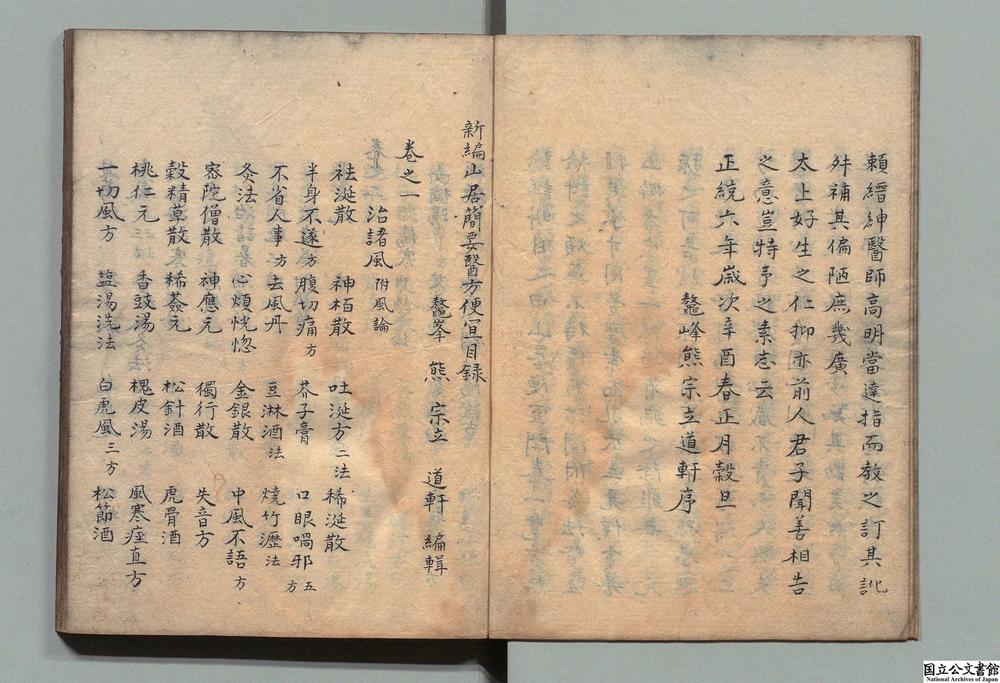 賴縉紳醫師高明當達指而教之訂其訛
舛補其偏陋庶幾廣
太上好生之仁抑亦前人君子聞善相告
之意豈特予之素志云
正統六年歲次辛酉春正月穀旦
鼇峰熊宗立道軒序
新編山居簡要醫方便宜目録
鼇峯 熊 宗立 道軒 編輯
卷之一 治諸風 附風論
祛涎散 神柏散 吐涎方二法 稀涎散
半身不遂方 腹切痛方 芥子膏 口眼喎邪五方
不省人事方 去風丹 豆淋酒法 燒竹瀝法
灸法 心煩恍惚 金銀散 中風不語方
密陀僧散 神應元 獨行散 失音方
穀精草散 稀薟元 松針酒 虎骨酒
桃仁元 香豉湯 槐皮湯 風寒痙直方
一切風方 塩湯洗法 白虎風三方 松節酒
国立公文書館
National Archives of Japan